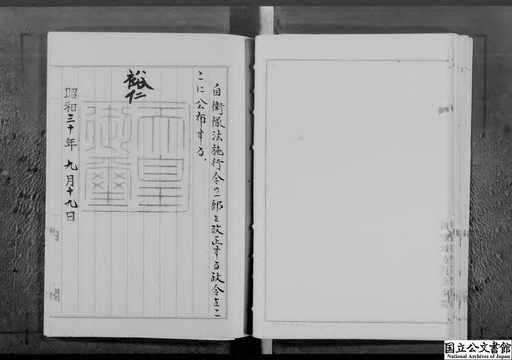 自衛隊法施行令の一部を改正する政令をこ
こに公布する。
裕仁
天皇
御璽
昭和三十年九月十九日
国立公文書館
National Archives of Japan